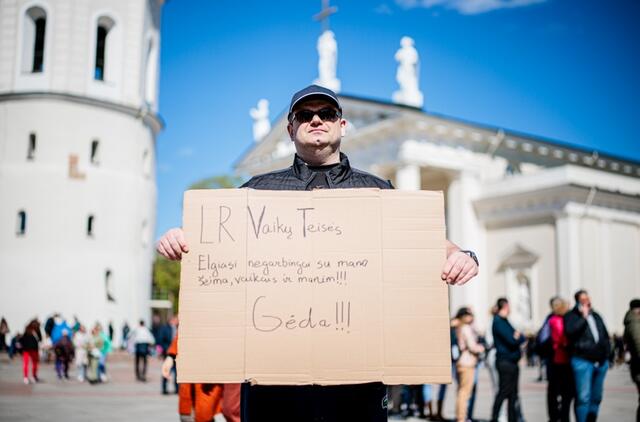 LR Vaikų Teisės
Elgiasi negarbingai su mano
šeima, vaikais ir manim!!!
Gėda!!!